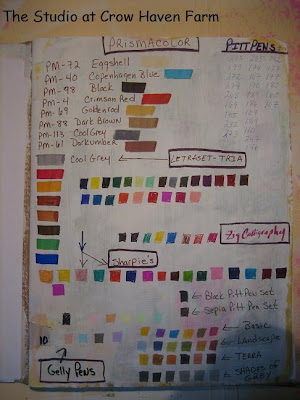 The Studio at Crow Haven Farm
PRISMACOLOR
PITT PENS
PM-72 Eggshell
PM-40 Copenhagen Blue
PM-98 Black
PM-4 Crimson Red
PM-69 Goldenrod
PM-88 Dark Brown
PM-113 Cool Grey
PM-61 Dark umber
Cool Grey
LETRASET-TRIA
Zig Calligraphy
Sharpie's
Black Pitt Pen Set
Sepia Pitt Pen Set
Basic
Landscape
TERRA
SHADES OF GREY
10
Gelly Pens